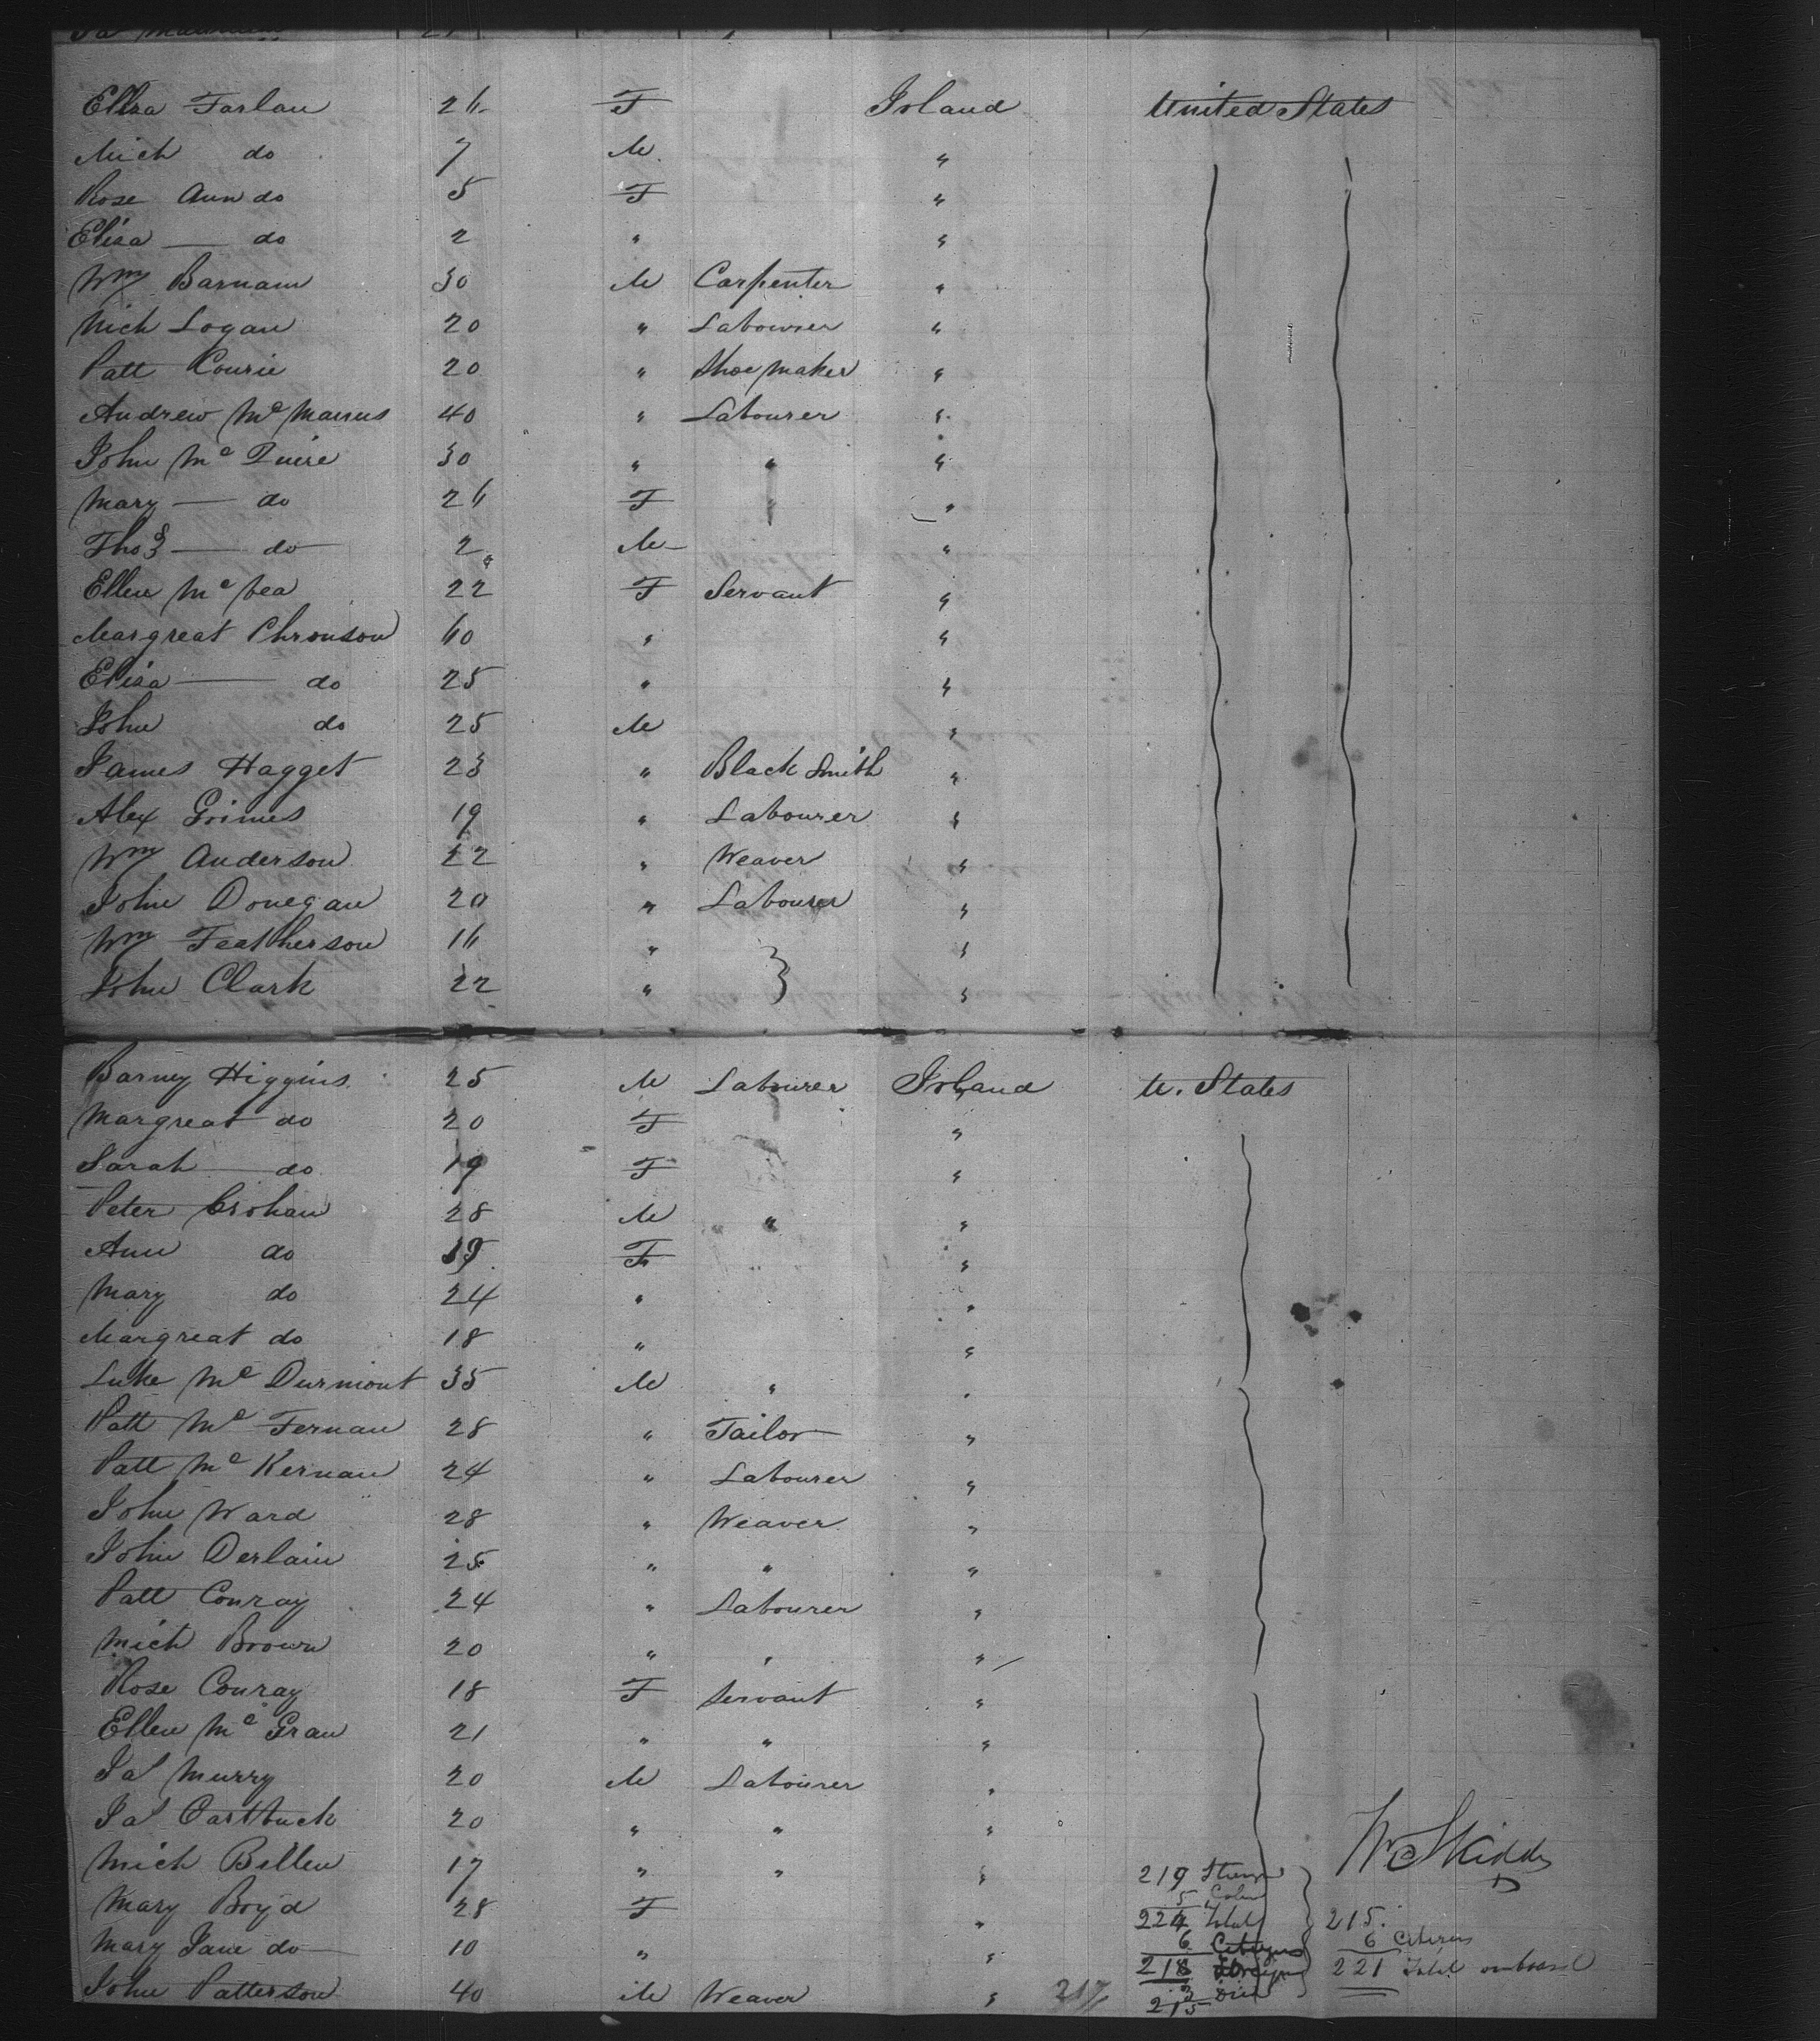 Eliza Farlan 26 F Irland United States
Mich do 7 M "
Rose Ann do 5 F "
Eliza — do 2 " "
Wm Barnam 30 M Carpenter "
Mich Logan 20 " Labourer "
Patt Courie 20 " Shoe maker "
Andrew Mc Manus 40 " Labourer "
John Mc Quire 30 " " "
Mary — do 26 F " "
Thos — do 2 M "
Ellen Mc 22 F Servant "
Margreat Chronson 60 " "
Eliza — do 25 " "
John do 25 M "
James Hagget 23 " Black Smith "
Alex Grimes 19 " Labourer "
Wm Anderson 22 " Weaver "
John Donegan 20 " Labourer "
Wm Featherson 16 " "
John Clark 22 " "
Barney Higgins 25 M Labourer Irland U. States
Margreat do 20 F "
Sarah — do 19 F "
Peter Crohan 28 M " "
Ann do 19 F "
Mary do 24 " "
Margreat do 18 " "
Luke Mc Durmont 35 M " "
Patt Mc Fernan 28 " Tailor "
Patt Mc Kernan 24 " Labourer "
John Ward 28 " Weaver "
John Derlain 25 " " "
Patt Conray 24 " Labourer "
Mich Brown 20 " " "
Rose Conray 18 F Servant "
Ellen Mc Gran 21 " " "
Ja Murry 20 M Labourer "
Ja Cartbuck 20 " " "
Mich Billen 17 " " "
Mary Boyd 28 F "
Mary Jane do 10 " "
John Patterson 40 M Weaver "
217
219
5
224 Total
6 Citizens
218
3 Died
215
215
6 Citizens
221 Total onboard